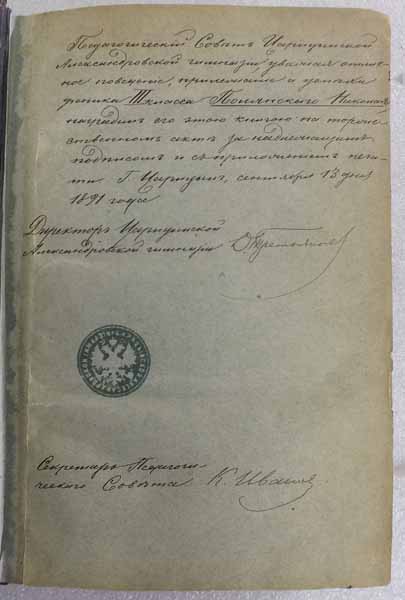 Педагогическій Совѣтъ Царицынской
Александровской гимназіи уважая отлич-
ное поведеніе, прилежаніе и успѣхи
ученика III класса Николая
наградилъ его этою книгою на торже-
ственномъ актѣ за надлежащимъ
подписомъ и съ приложеніемъ печа-
ти. Г. Царицынъ, сентября 13 дня
1891 года
Директоръ Царицынской
Александровской гимназіи
Секретарь Педагоги-
ческаго Совѣта К. Ивановъ